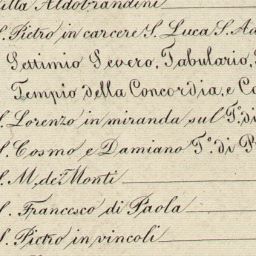 Villa Aldobrandini
S. Pietro in carcere S. Luca S. Ad
Settimio Severo, Tabulario,
Tempio della Concordia, e C
S. Lorenzo in miranda sul T.º di
S. Cosmo e Damiano T.º di R
S. M. de' Monti
S. Francesco di Paola
S. Pietro in vincoli